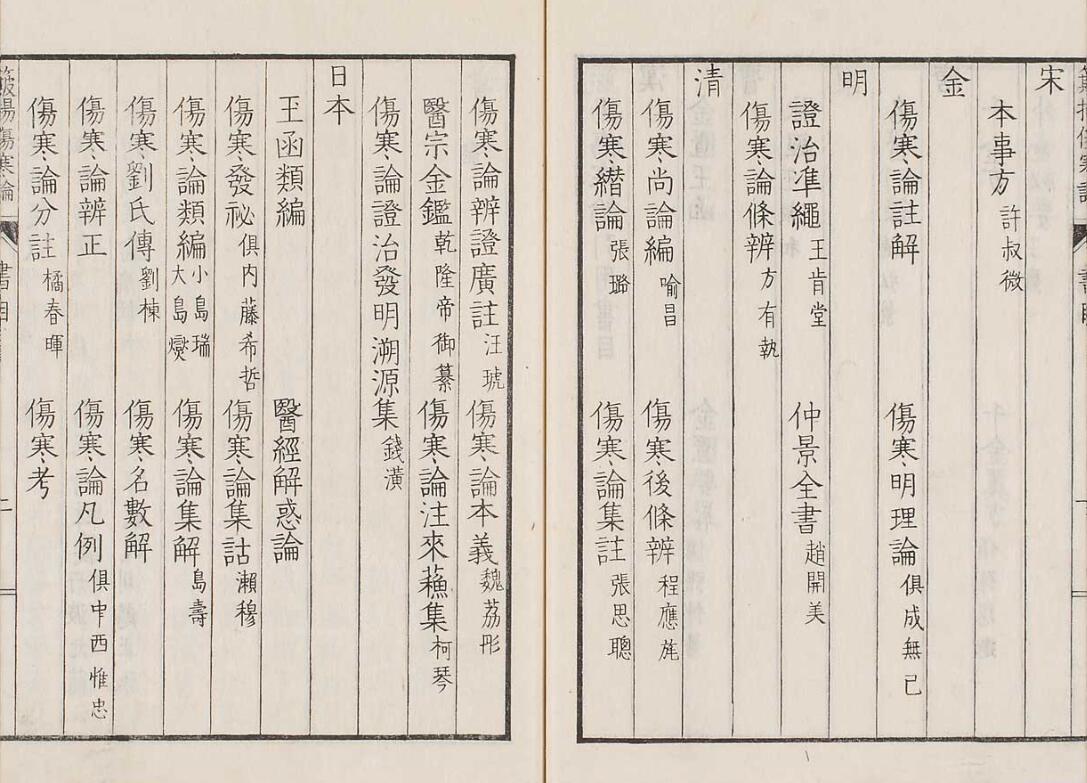 宋
本事方 許叔微
金
傷寒論註解 傷寒明理論 俱成無已
明
證治準繩 王肯堂 仲景全書 趙開美
傷寒論條辨 方有執
清
傷寒尚論編 喻昌 傷寒後條辨 程應旄
傷寒纘論 張璐 傷寒論集註 張思聰
傷寒論辨證廣註 汪琥 傷寒論本義 魏荔彤
醫宗金鑑 乾隆帝御纂 傷寒論注來蘓集 柯琴
傷寒論證治發明溯源集 錢潢
日本
玉函類編 醫經解惑論
傷寒發祕 俱内藤希哲 傷寒論集詁 瀨穆
傷寒論類編 小島瑞 大島燮 傷寒論集解 島壽
傷寒劉氏傳 劉棟 傷寒名數解
傷寒論辨正 傷寒論凡例 俱中西惟忠
傷寒論分註 橘春暉 傷寒考
傷寒論 書目 二